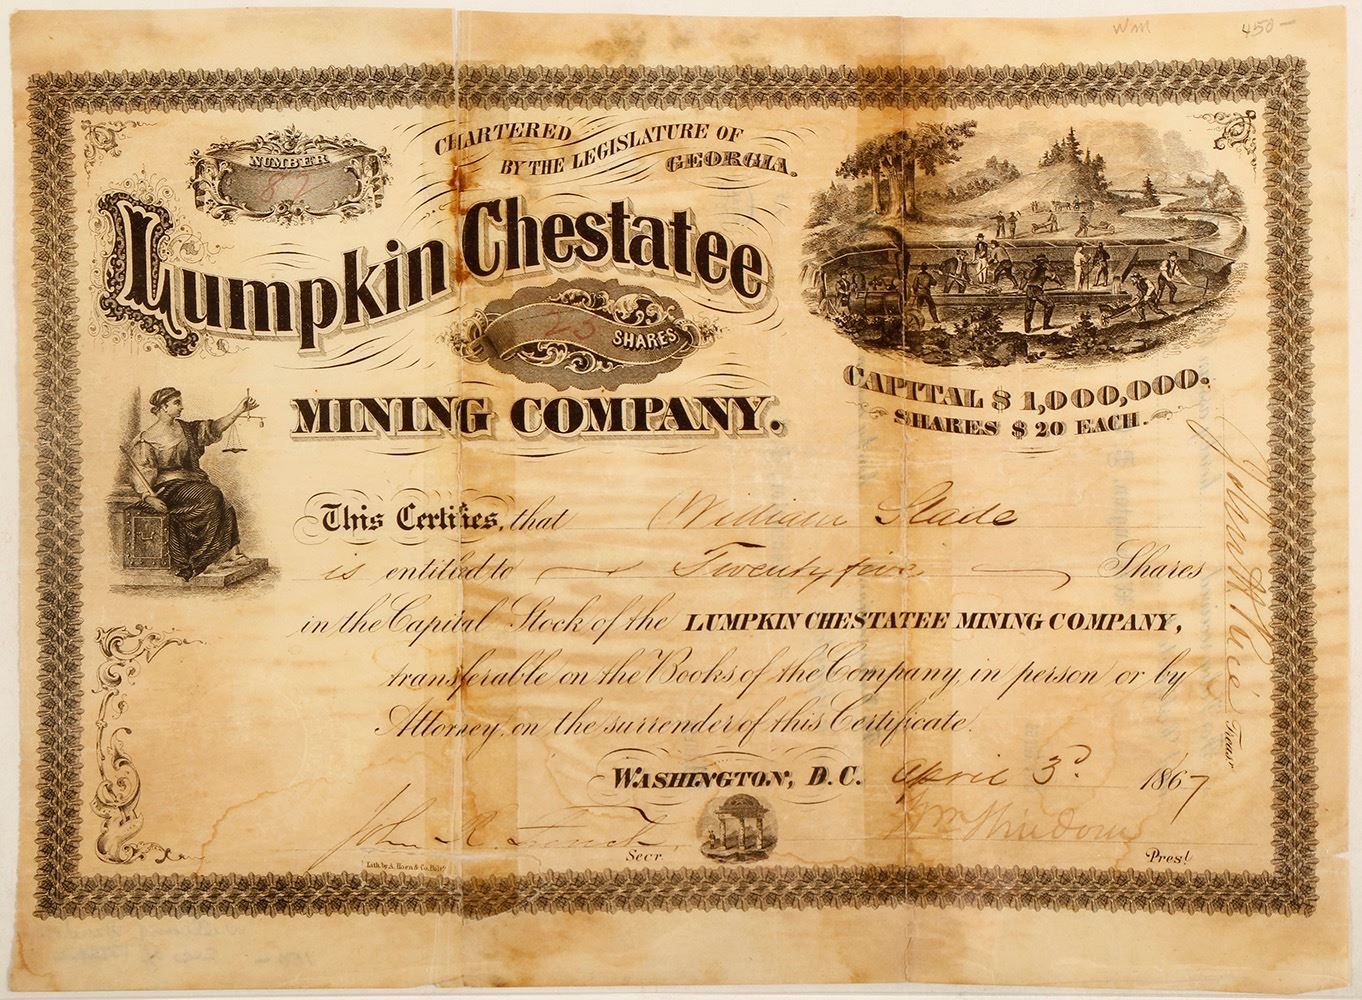 Wm 450-
NUMBER
82
CHARTERED
BY THE LEGISLATURE OF
GEORGIA.
Lumpkin Chestatee
25 SHARES
MINING COMPANY.
CAPITAL $ 1,000,000.
SHARES $ 20 EACH.
This Certifies, that William Slade
is entitled to Twenty five Shares
in the Capital Stock of the LUMPKIN CHESTATEE MINING COMPANY,
transferable on the Books of the Company, in person or by
Attorney, on the surrender of this Certificate.
WASHINGTON, D.C. April 3d 1867
John R. Secr
Wm Windom Prest
Lith. by A. Hoen & Co. Balto
John Treasr